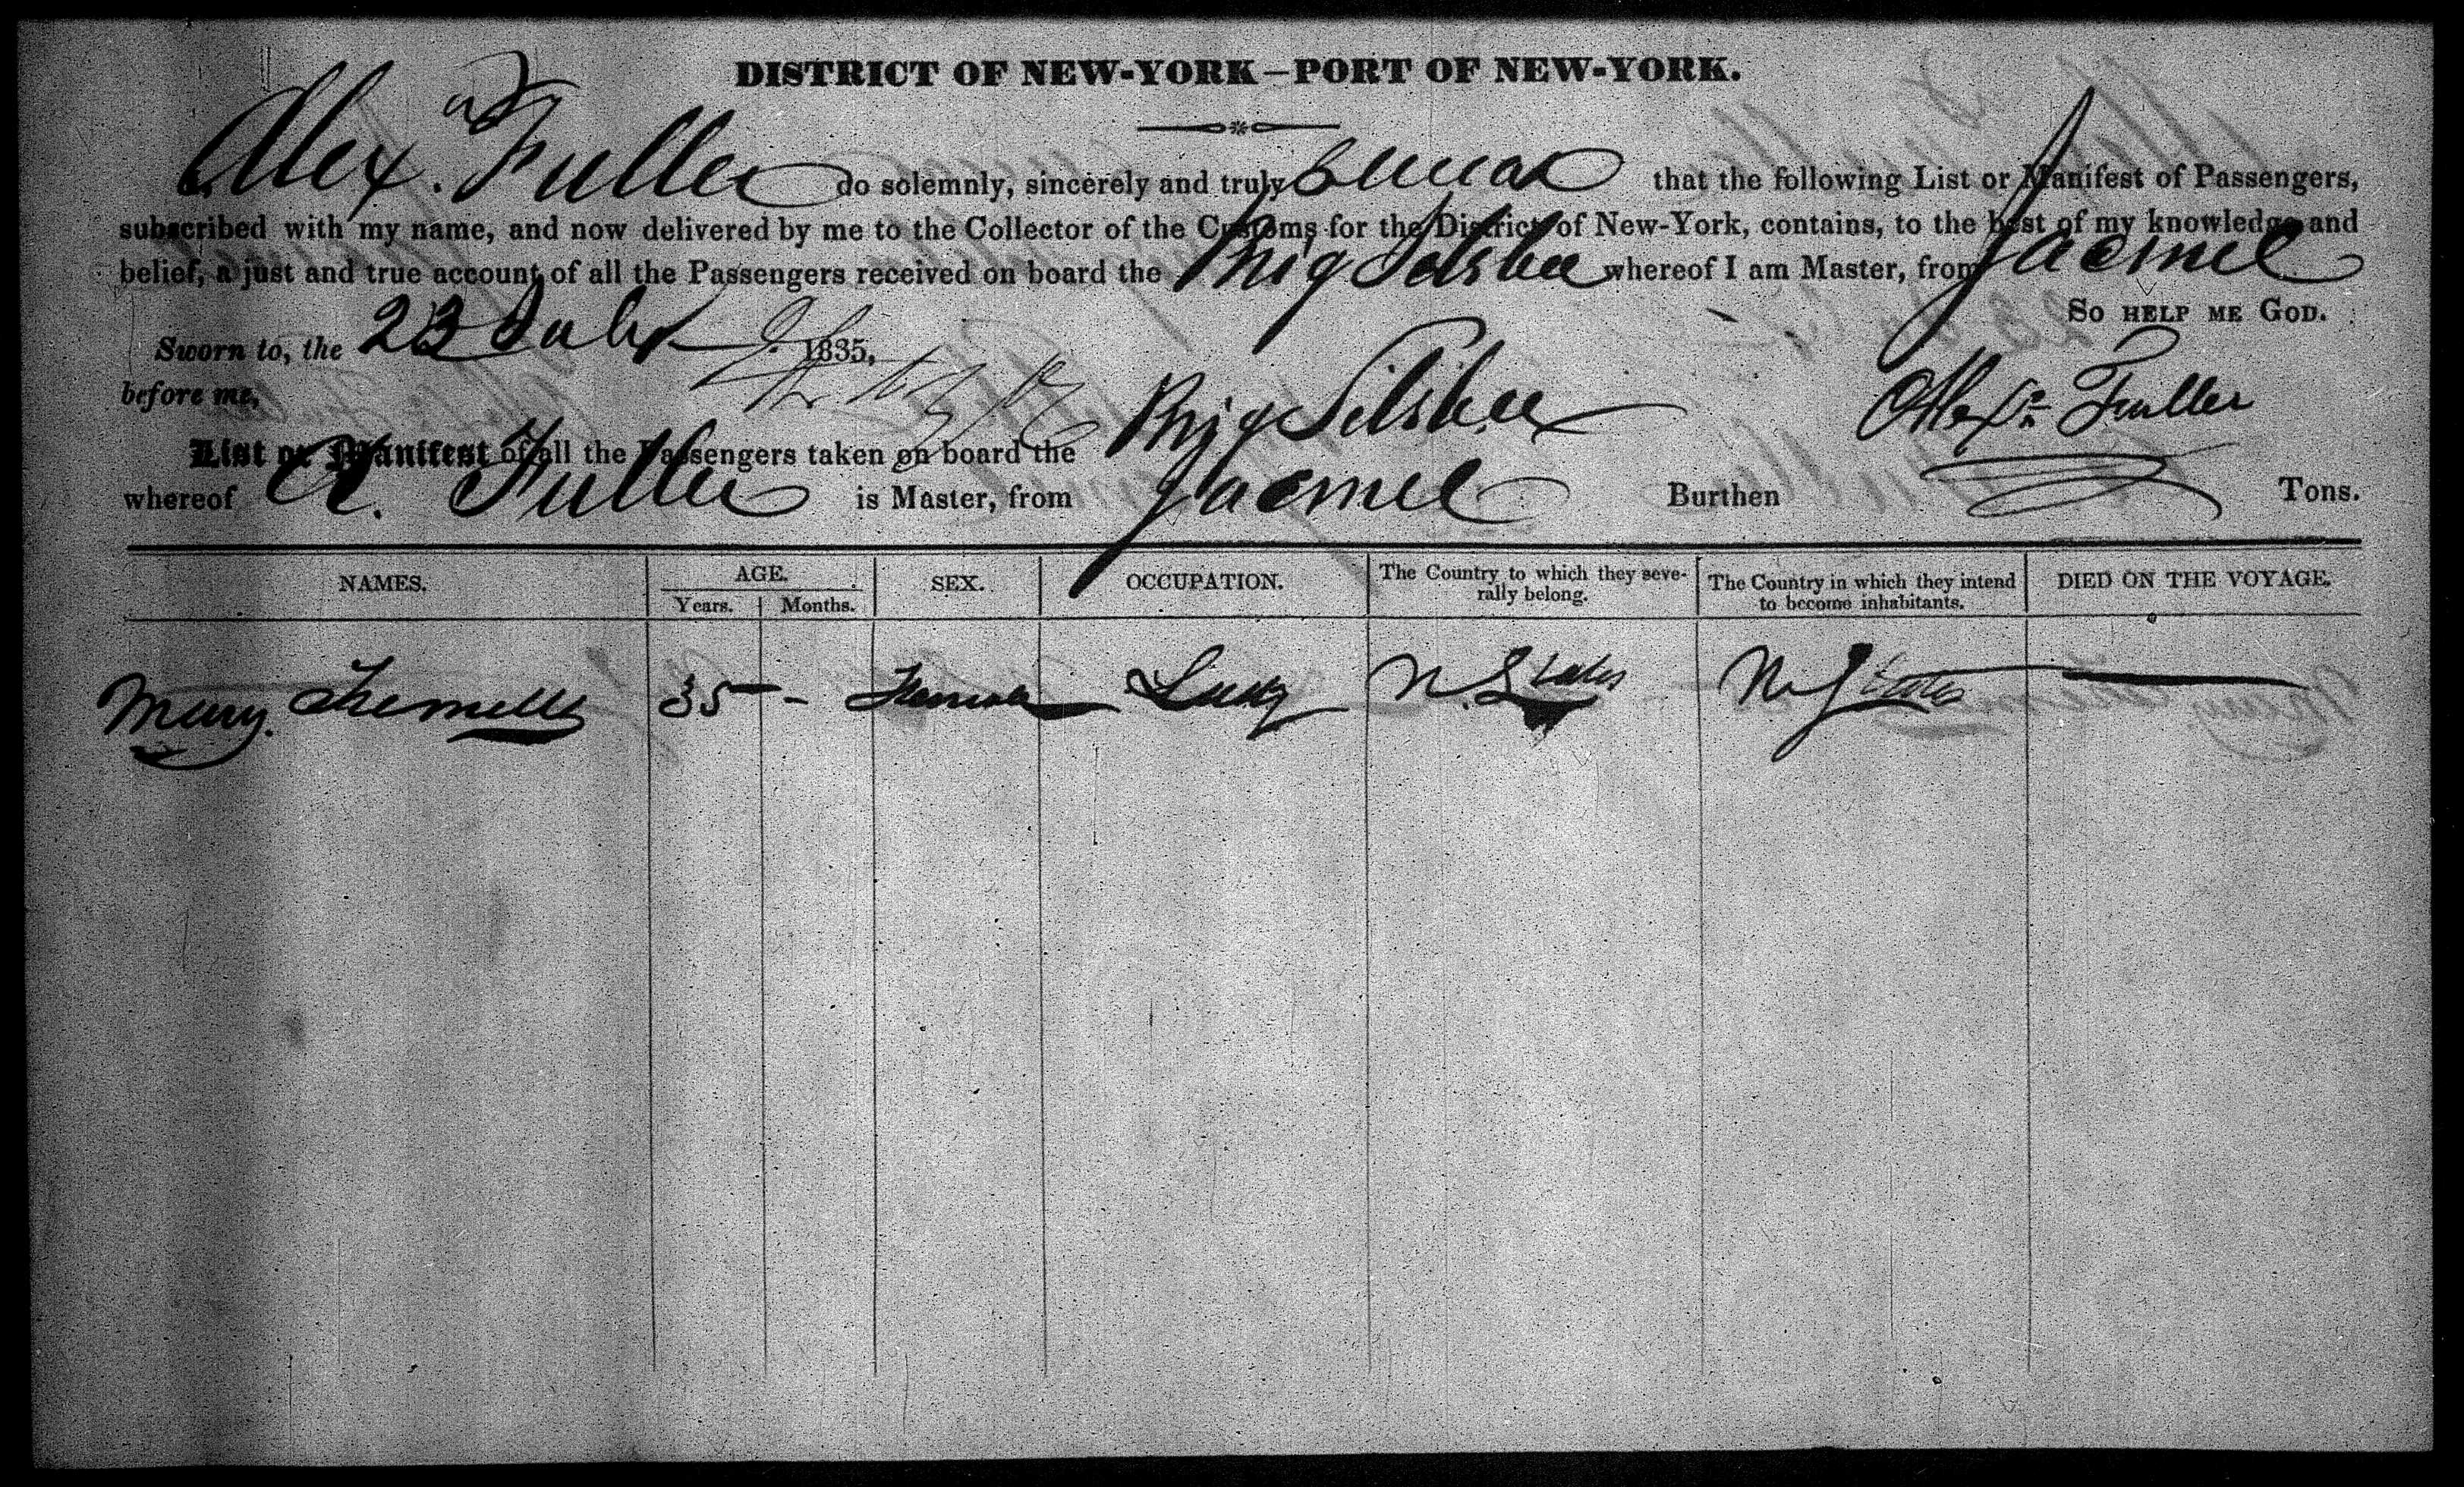 DISTRICT OF NEW-YORK—PORT OF NEW-YORK.
Alex. Fuller do solemnly, sincerely and truly swear that the following List or Manifest of Passengers,
subscribed with my name, and now delivered by me to the Collector of the Customs for the District of New-York, contains, to the best of my knowledge and
belief, a just and true account of all the Passengers received on board the Brig Silsbee whereof I am Master, from Jacmel
So HELP ME GOD.
Sworn to, the 23 July 1835,
before me,
Alexr Fuller
List or Manifest of all the Passengers taken on board the Brig Silsbee
whereof A. Fuller is Master, from Jacmel Burthen Tons.
NAMES. AGE. SEX. OCCUPATION. The Country to which they seve- The Country in which they intend DIED ON THE VOYAGE.
Years. Months. rally belong. to become inhabitants.
Mary 35 - Female Lady U. States U States —